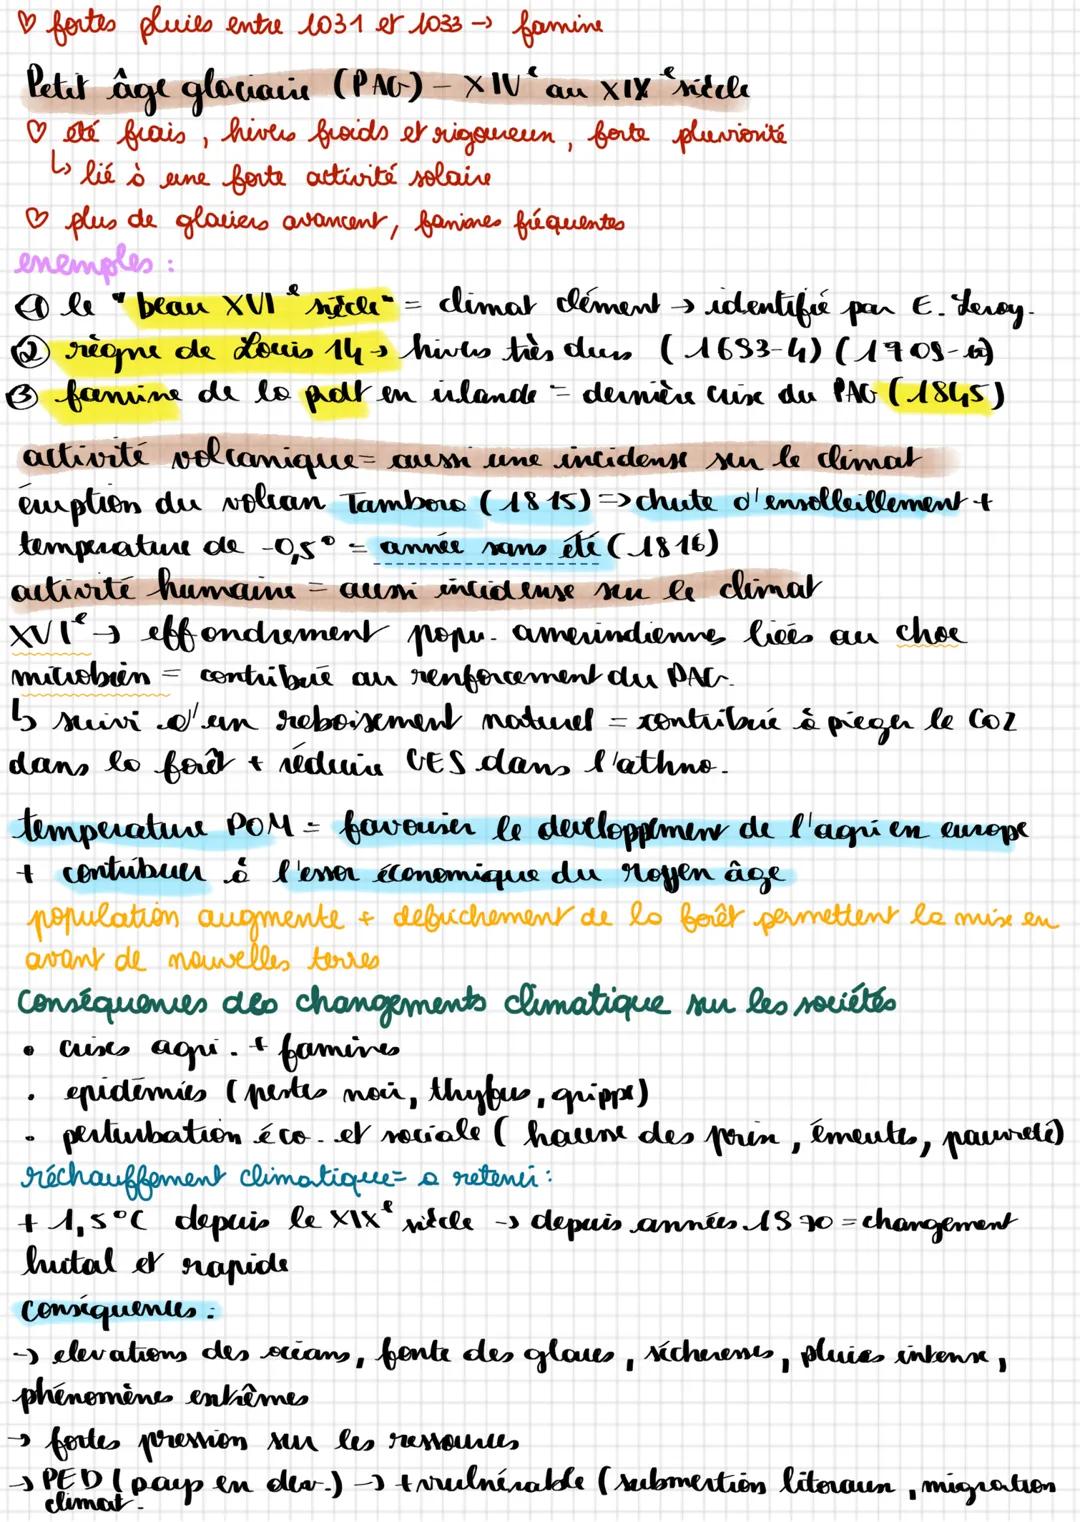 ♡ fortes pluies entre 1031 et 1033 → famine
Petit âge glaciaire (PAG) – XIVe au XIXe siècle
♡ été frais, hivers froids et rigoureux, forte pluviosité
↳ lié à une forte activité solaire
♡ plus de glaciers avancent, famines fréquentes
exemples :
① le "beau XVIe siècle" = climat clément → identifié par E. Leroy.
② règne de Louis 14 → hivers très durs (1693-4) (1709-10)
③ famine de la pdt en irlande = dernière crise du PAG (1845)
activité volcanique = aussi une incidense sur le climat
éruption du volcan Tambora (1815) => chute d'ensolleillement +
temperature de -0,5° = année sans été (1816)
activité humaine = aussi incidense sur le climat
XVIe → effondrement popu. amerindiennes liées au choc
microbien = contribué au renforcement du PAG.
↳ suivi d'un reboisement naturel = contribué à pieger le CO2
dans la forêt + réduire GES dans l'athmo.
temperature POM = favoriser le developpement de l'agri en europe
+ contribuer à l'essor économique du moyen âge
population augmente + defrichement de la forêt permettent la mise en
avant de nouvelles terres
Conséquences des changements climatique sur les sociétés
• crises agri. + famines
• epidémies (pestes noir, thyfus, grippe)
• perturbation éco. et sociale (hausse des prix, émeutes, pauvreté)
réchauffement climatique = a retenir :
+ 1,5°C depuis le XIXe siècle → depuis années 1970 = changement
brutal et rapide
conséquences :
→ elevations des océans, fonte des glaces, sécheresses, pluies intense,
phénomènes extrêmes
→ fortes pression sur les ressources
→ PED (pays en dev.) → + vulnérable (submertion litoraux, migration
climat.